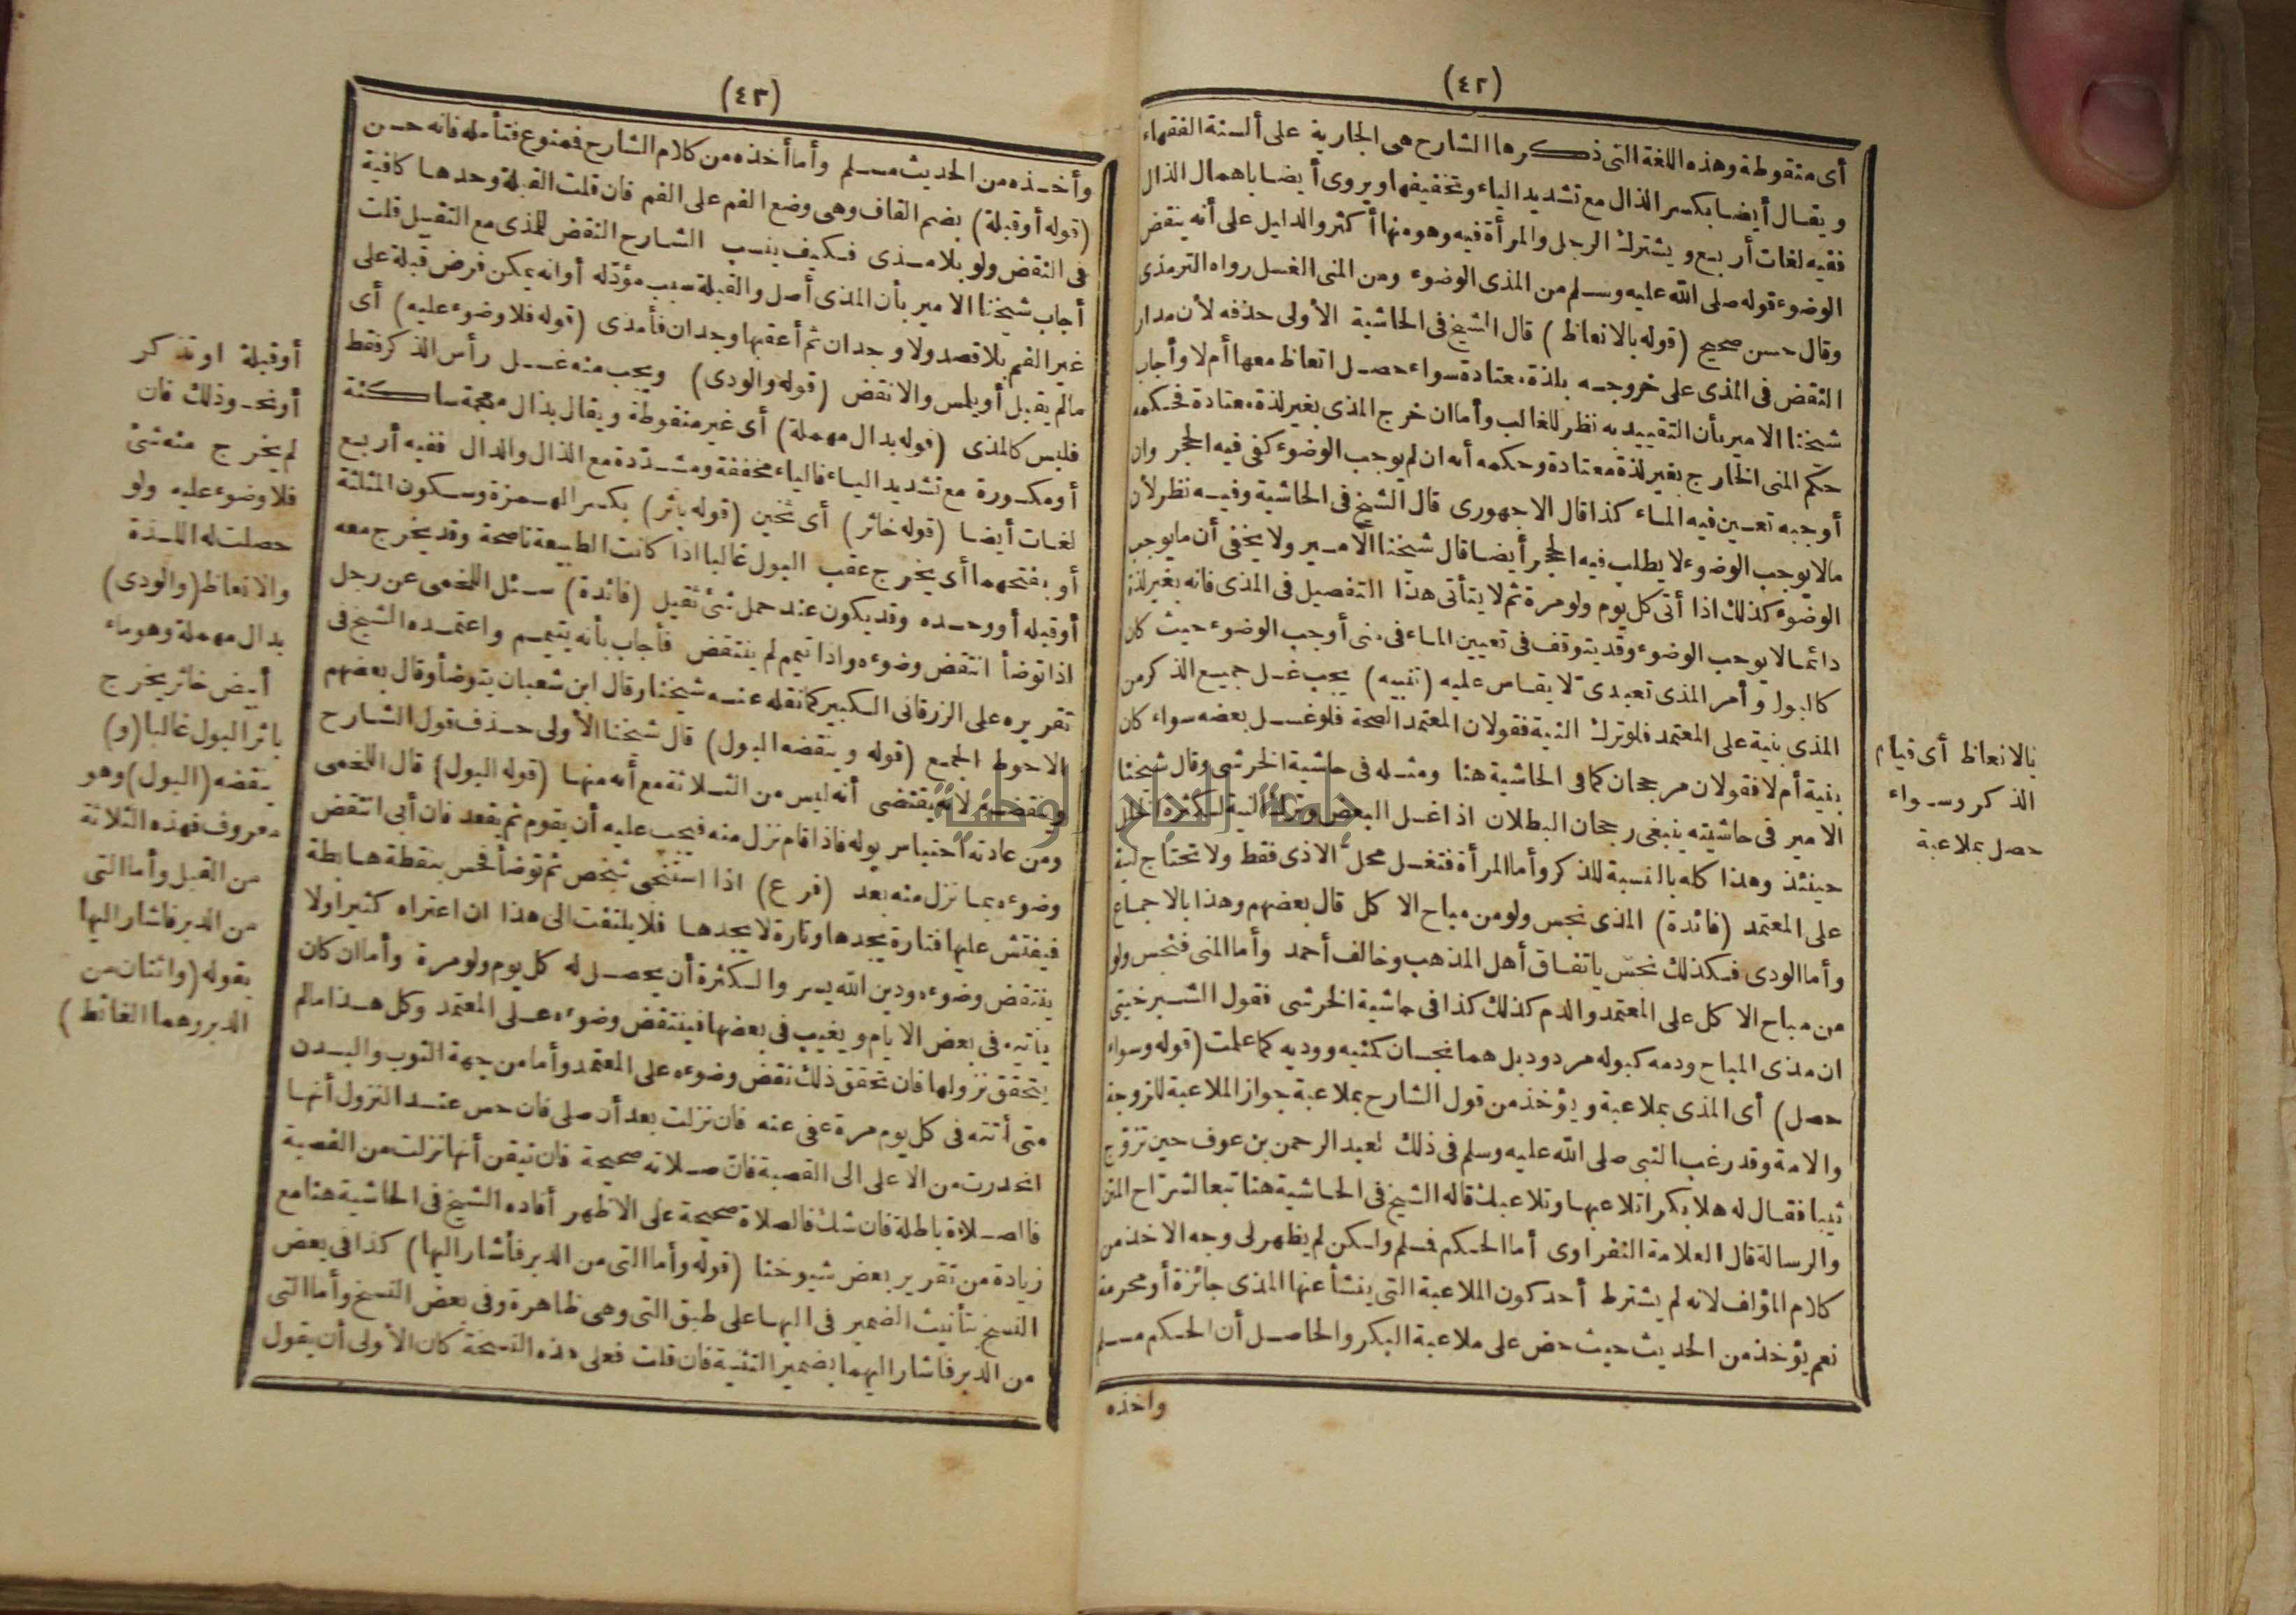 (٤٢)
أى منقوطة وهذه اللغة التى ذكرها الشارح هى الجارية على ألسنة الفقهاء
ويقال أيضا بكسر الذال مع تشديد الياء وتخفيفها ويروى أيضا باهمال الذال
ففيه لغات أربع ويشترك الرجل والمرأة فيه وهو منها أكثر والدليل على أنه ينقض
الوضوء قوله صلى الله عليه وسلم من المذى الوضوء ومن المنى الغسل رواه الترمذى
وقال حسن صحيح (قوله بالانعاظ) قال الشيخ فى الحاشية الأولى حذفه لأن مدار
النقض فى المذى على خروجه بلذة معتادة سواء حصل انعاظ معها أم لا وأجاب
شيخنا الامير بأن التقييد به نظر للغالب وأما ان خرج المذى بغير لذة معتادة فحكمه
حكم المنى الخارج بغير لذة معتادة وحكمه أنه ان لم يوجب الوضوء كفى فيه الحجر وان
أوجبه تعين فيه الماء كذا قال الاجهورى قال الشيخ فى الحاشية وفيه نظر لأن
مالا يوجب الوضوء لا يطلب فيه الحجر أيضا قال شيخنا الامير ولا يخفى أن ما يوجب
الوضوء كذلك اذا أتى كل يوم ولو مرة ثم لا يتأتى هذا التفصيل فى المذى فانه بغير لذة
دائما لا يوجب الوضوء وقد يتوقف فى تعيين الماء فى منى أوجب الوضوء حيث كان
كالبول وأمر المذى تعبدى لا يقاس عليه (تنبيه) يجب غسل جميع الذكر من
المذى بنية على المعتمد فلو ترك النية فقولان المعتمد الصحة فلو غسل بعضه سواء كان
بنية أم لا فقولان مرجحان كما فى الحاشية هنا ومثله فى حاشية الخرشى وقال شيخنا
الامير فى حاشيته ينبغى رجحان البطلان اذا غسل البعض وترك النية لكثرة الخلل
حينئذ وهذا كله بالنسبة للذكر وأما المرأة فتغسل محل الاذى فقط ولا تحتاج لنية
على المعتمد (فائدة) المذى نجس ولو من مباح الاكل قال بعضهم وهذا بالاجماع
وأما الودى فكذلك نجس باتفاق أهل المذهب وخالف أحمد وأما المنى فنجس ولو
من مباح الاكل على المعتمد والدم كذلك كذا فى حاشية الخرشى فقول الشبرخيتى
ان مذى المباح ودمه كبوله مردود بل هما نجسان كمنيه ووديه كما علمت (قوله وسواء
حصل) أى المذى بملاعبة ويؤخذ من قول الشارح بملاعبة جواز الملاعبة للزوجة
والامة وقد رغب النبى صلى الله عليه وسلم فى ذلك لعبد الرحمن بن عوف حين تزوّج
ثيبا فقال له هلا بكرا تلاعبها وتلاعبك قاله الشيخ فى الحاشية هنا تبعا لشراح المتن
والرسالة قال العلامة النفراوى أما الحكم فسلم ولكن لم يظهر لى وجه الاخذ من
كلام المؤلف لانه لم يشترط أحد كون الملاعبة التى ينشأ عنها المذى جائزة أو محرمة
نعم يؤخذ من الحديث حيث حض على ملاعبة البكر والحاصل أن الحكم مسلم
واخذه
بالانعاظ أى قيام
الذكر وسواء
حصل بملاعبة
(٤٣)
وأخذه من الحديث مسلم وأما أخذه من كلام الشارح فممنوع فتأمله فانه حسن
(قوله أو قبلة) بضم القاف وهى وضع الفم على الفم فان قلت القبلة وحدها كافية
فى النقض ولو بلا مذى فكيف ينسب الشارح النقض للمذى مع التقبيل قلت
أجاب شيخنا الامير بأن المذى أصل والقبلة سبب مؤدّ له أو انه يمكن فرض قبلة على
غير الفم بلا قصد ولا وجدان ثم أعقبها وجدان فأمذى (قوله فلا وضوء عليه) أى
مالم يقبل أو يلمس والا نقض (قوله والودى) ويجب منه غسل رأس الذكر فقط
فليس كالمذى (قوله بدال مهملة) أى غير منقوطة ويقال بذال معجمة ساكنة
أو مكسورة مع تشديد الياء فالياء مخففة ومشدّدة مع الذال والدال ففيه أربع
لغات أيضا (قوله خاثر) أى ثخين (قوله باثر) بكسر الهمزة وسكون المثلثة
أو بفتحهما أى يخرج عقب البول غالبا اذا كانت الطبيعة ناصحة وقد يخرج معه
أو قبله أو وحده وقد يكون عند حمل شئ ثقيل (فائدة) سئل اللخمى عن رجل
اذا توضأ انتقض وضوءه واذا تيمم لم ينتقض فأجاب بأنه يتيمم واعتمده الشيخ فى
تقريره على الزرقانى الكبير كما نقله عنه شيخنا وقال ابن شعبان يتوضأ وقال بعضهم
الاحوط الجمع (قوله وينقضه البول) قال شيخنا الأولى حذف قول الشارح
وينقضه لانه يقتضى أنه ليس من الثلاثة مع أنه منها (قوله البول) قال اللخمى
ومن عادته احتباس بوله فاذا قام نزل منه فيجب عليه أن يقوم ثم يقعد فان أبى انتقض
وضوءه بما نزل منه بعد (فرع) اذا استنجى شخص ثم توضأ فحس بنقطة هابطة
فيفتش عليها فتارة يجدها وتارة لا يجدها فلا يلتفت الى هذا ان اعتراه كثيرا ولا
ينتقض وضوءه ودين الله يسر والكثرة أن يحصل له كل يوم ولو مرة وأما ان كان
يأتيه فى بعض الايام ويغيب فى بعضها فينتقض وضوءه على المعتمد وكل هذا مالم
يتحقق نزولها فان تحقق ذلك نقض وضوءه على المعتمد وأما من جهة الثوب والبدن
متى أتته فى كل يوم مرة عفى عنه فان نزلت بعد أن صلى فان حس عند النزول أنها
انحدرت من الاعلى الى القصبة فان صلاته صحيحة فان تيقن أنها نزلت من القصبة
فالصلاة باطلة فان شك فالصلاة صحيحة على الاظهر أفاده الشيخ فى الحاشية هنا مع
زيادة من تقرير بعض شيوخنا (قوله وأما التى من الدبر فأشار اليها) كذا فى بعض
النسخ بتأنيث الضمير فى اليها على طبق التى وهى ظاهرة وفى بعض النسخ وأما التى
من الدبر فاشار اليهما بضمير التثنية فان قلت فعلى هذه النسخة كان الأولى أن يقول
أو قبلة او تذكر
أو نحو ذلك فان
لم يخرج منه شئ
فلا وضوء عليه ولو
حصلت له اللذة
والانعاظ (والودى)
بدال مهملة وهو ماء
أبيض خاثر يخرج
باثر البول غالبا (و)
ينقضه (البول) وهو
معروف فهذه الثلاثة
من القبل وأما التى
من الدبر فاشار اليها
بقوله (واثنان من
الدبر وهما الغائط)
جامعة النجاح الوطنية